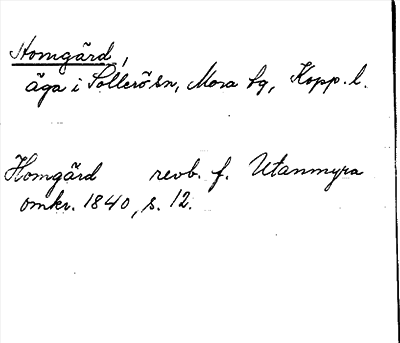 Homgärd,
äga i Sollerö sn, Mora tg, Kopp. l.
Homgärd revb. f. Utanmyra
omkr. 1840, s. 12.